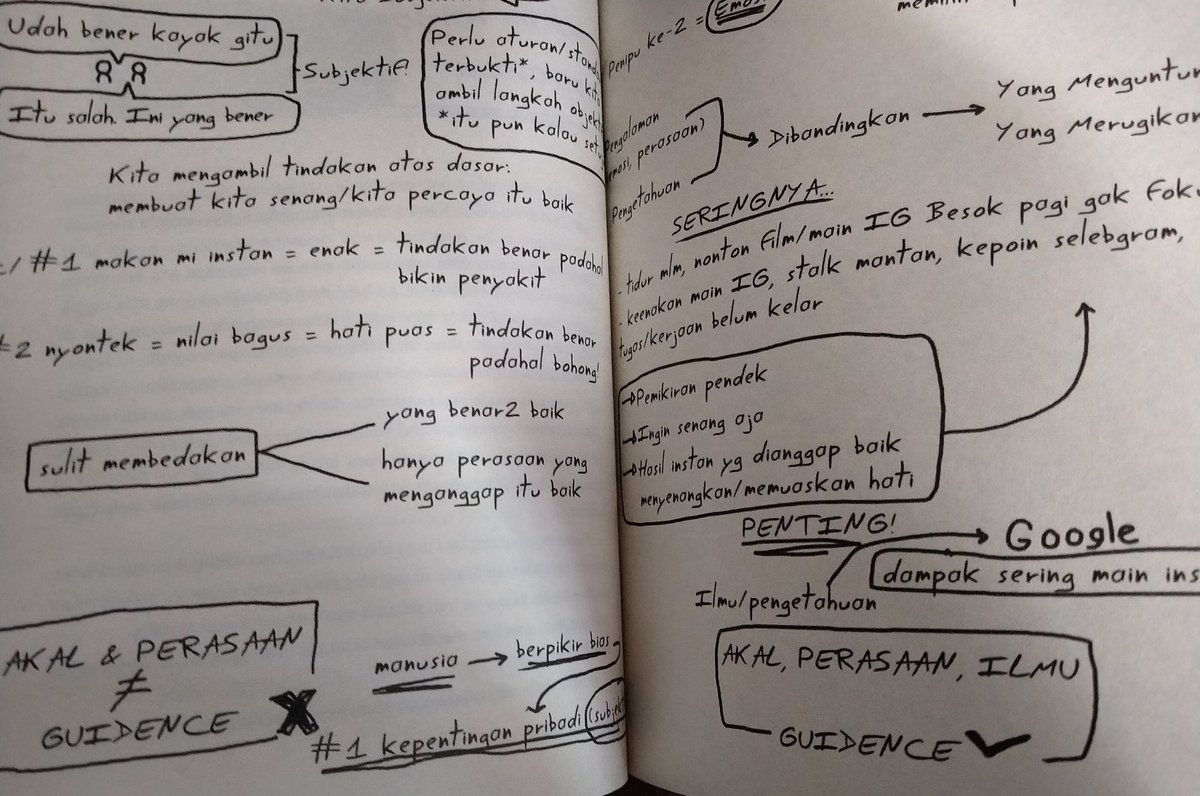 Udah bener kayak gitu
Subjektif!
Itu salah. Ini yang bener
Perlu aturan/
terbukti*, baru
ambil langkah
*itu pun kalau
Kita mengambil tindakan atas dasar:
membuat kita senang/kita percaya itu baik
/ #1 makan mi instan = enak = tindakan benar padahal
bikin penyakit
2 nyontek = nilai bagus = hati puas = tindakan benar
padahal bohong!
sulit membedakan
yang benar2 baik
hanya perasaan yang
menganggap itu baik
AKAL & PERASAAN
≠
GUIDENCE
manusia → berpikir bias
#1 kepentingan pribadi
Penipu ke-2 =
Pengalaman
emosi, perasaan)
Pengetahuan
Dibandingkan
Yang
Yang Merugikan
SERINGNYA...
- tidur mlm, nonton film/main IG Besok pagi gak
- keenakan main IG, stalk mantan, kepoin selebgram,
tugas/kerjaan belum kelar
→Pemikiran pendek
→Ingin senang aja
→Hasil instan yg dianggap baik
menyenangkan/memuaskan hati
PENTING!
Google
dampak sering main
Ilmu/pengetahuan
AKAL, PERASAAN, ILMU
GUIDENCE